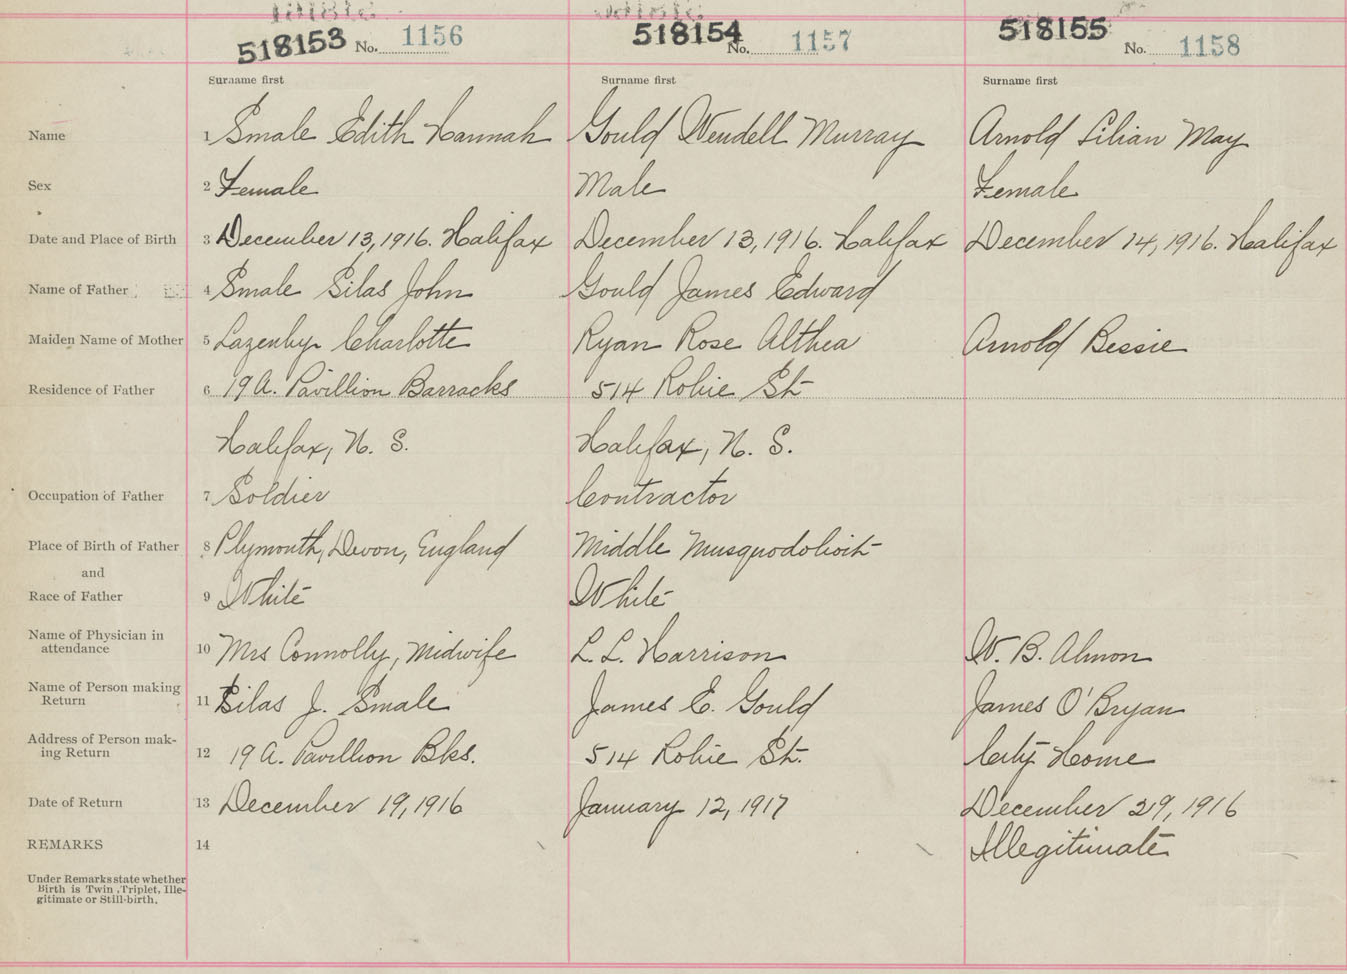 518153 No. 1156 518154 No. 1157 518155 No. 1158
Surname first Surname first Surname first
Name 1 Smale Edith Hannah Gould Wendell Murray Arnold Lilian May
Sex 2 Female Male Female
Date and Place of Birth 3 December 13, 1916. Halifax December 13, 1916. Halifax December 14, 1916. Halifax
Name of Father 4 Smale Silas John Gould James Edward
Maiden Name of Mother 5 Lazenby Charlotte Ryan Rose Althea Arnold Bessie
Residence of Father 6 19 A. Pavillion Barracks 514 Robie St
Halifax, N. S. Halifax, N. S.
Occupation of Father 7 Soldier Contractor
Place of Birth of Father 8 Plymouth, Devon, England Middle Musquodoboit
and
Race of Father 9 White White
Name of Physician in
attendance 10 Mrs Connolly, Midwife L. L. Harrison W. B. Almon
Name of Person making
Return 11 Silas J. Smale James E. Gould James O'Bryan
Address of Person mak-
ing Return 12 19 A. Pavillion Bks. 514 Robie St. City Home
Date of Return 13 December 19, 1916 January 12, 1917 December 29, 1916
REMARKS 14 Illegitimate
Under Remarks state whether
Birth is Twin, Triplet, Ille-
gitimate or Still-birth.